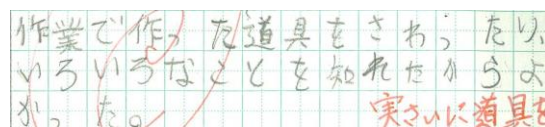 作業で作った道具をさわったり、
いろいろなことを知れたからよ
かった。
実さいに道具を